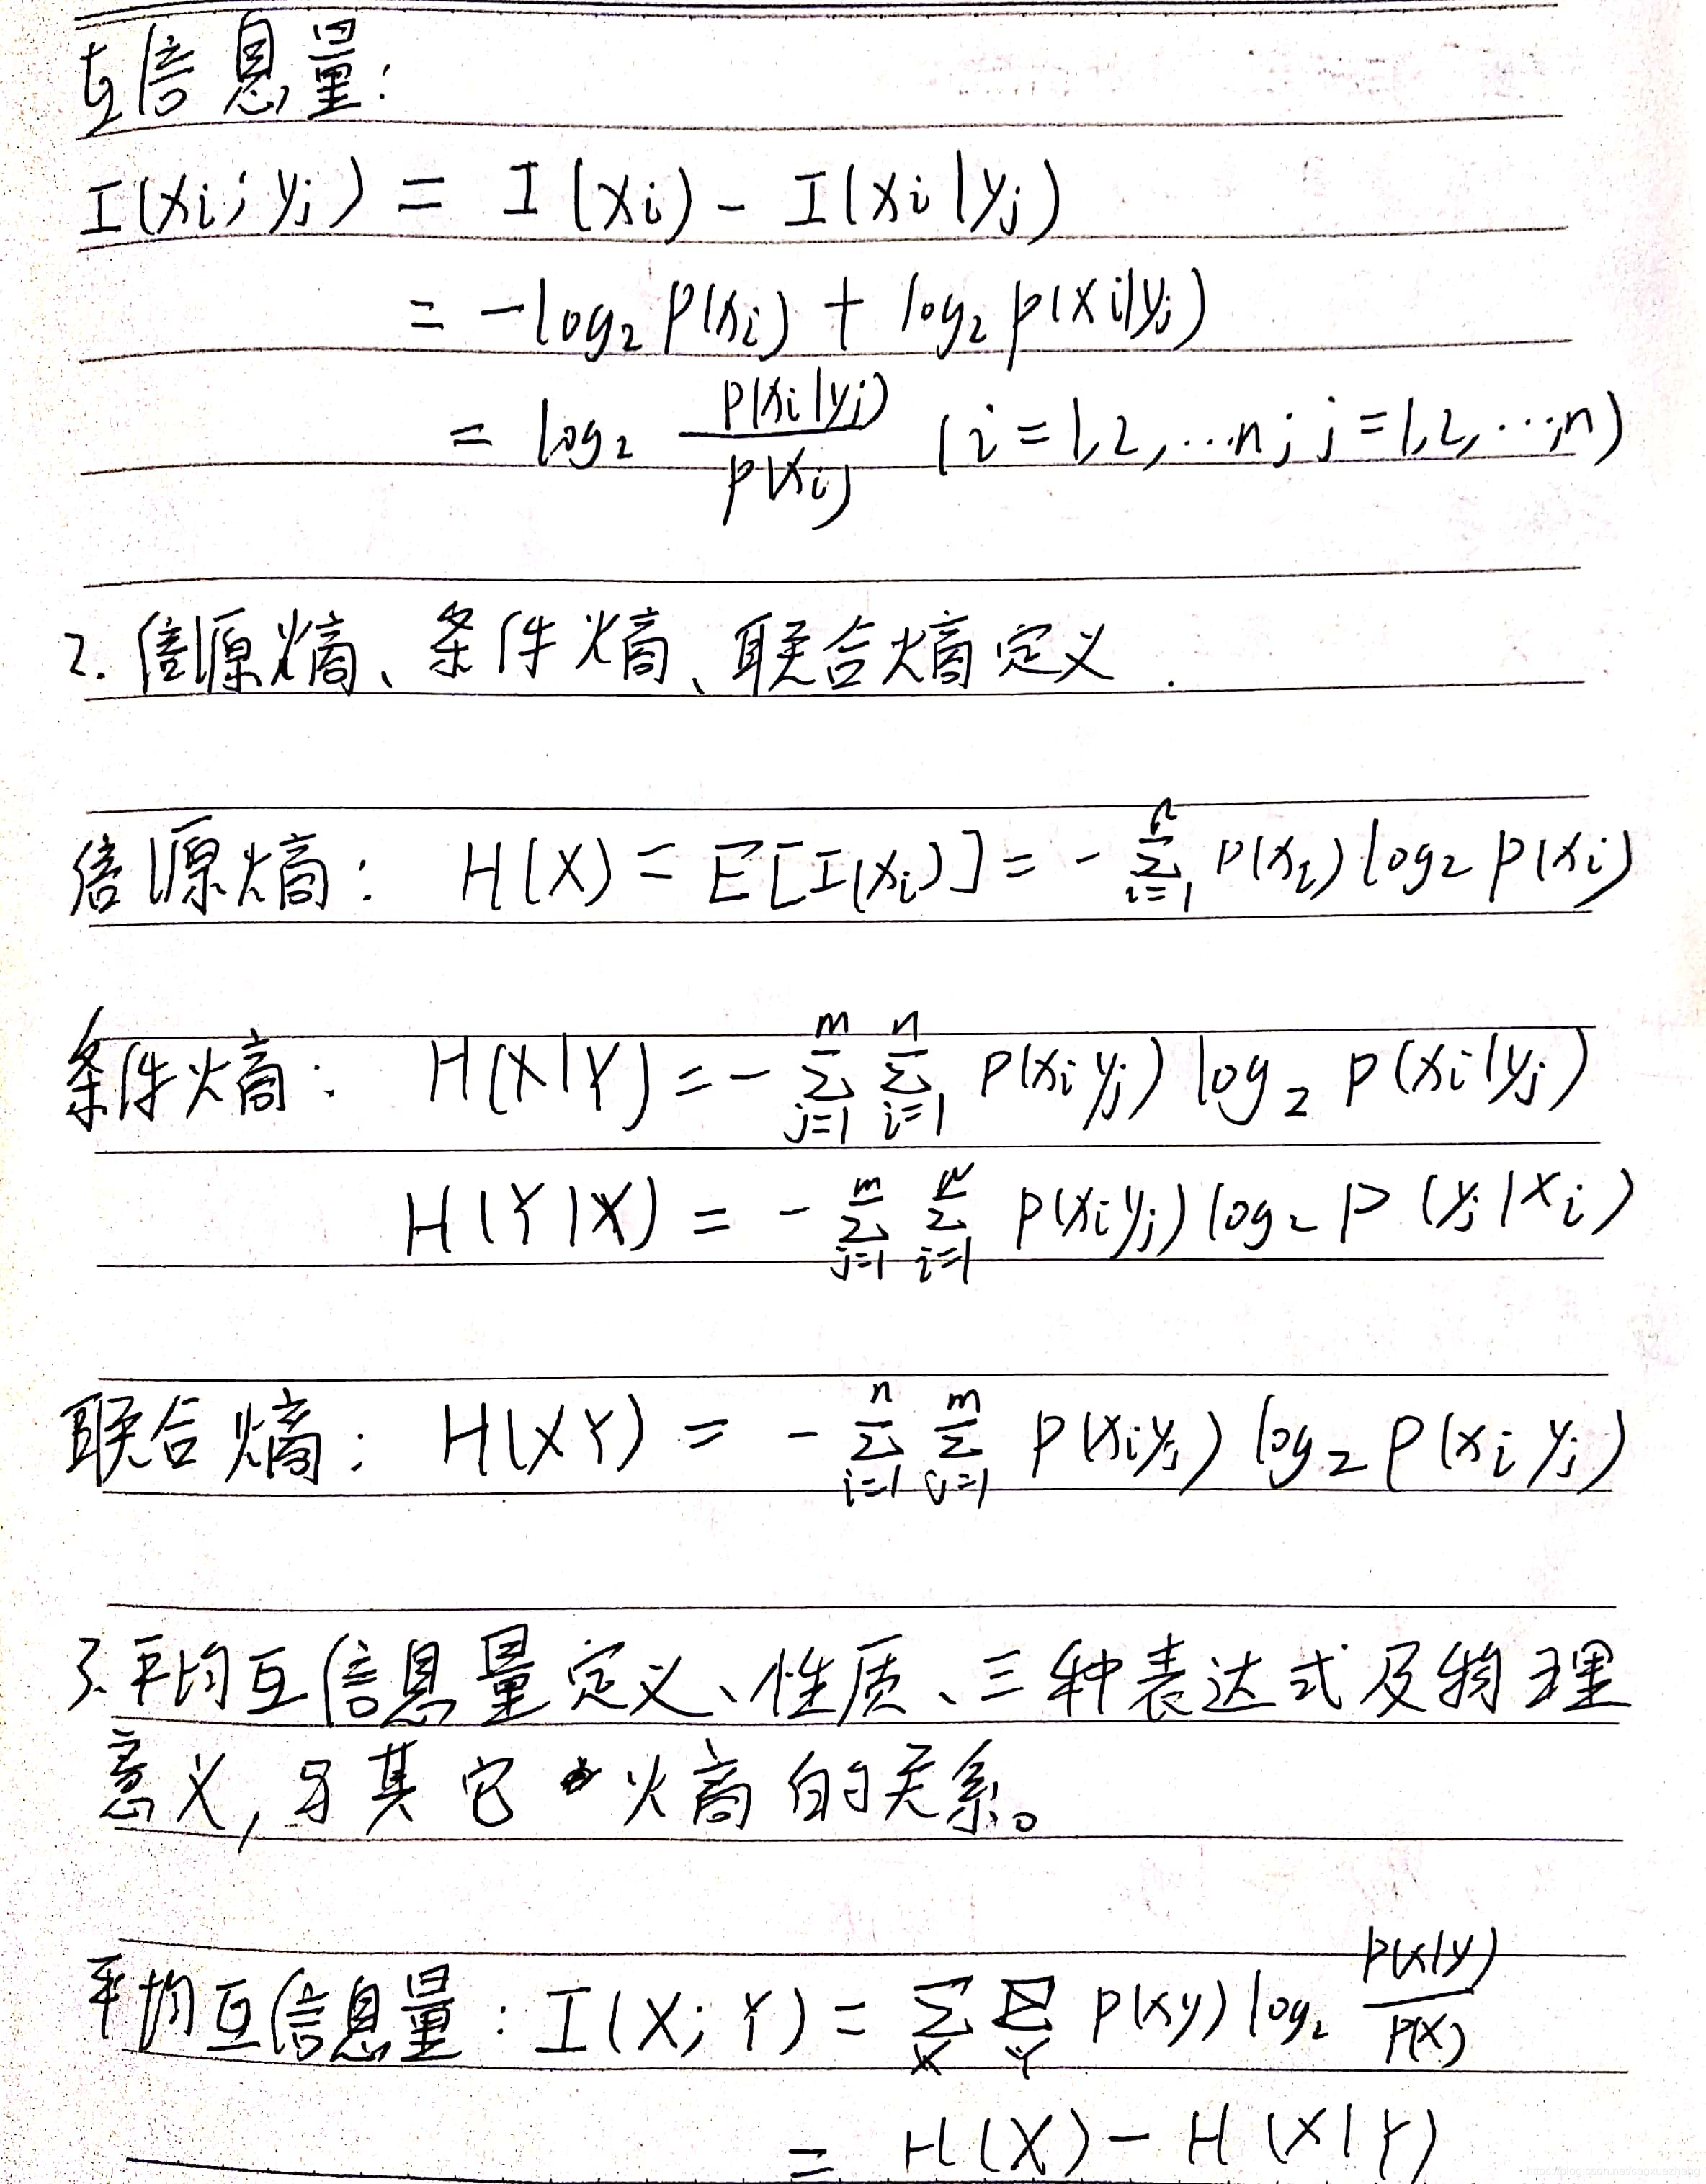 互信息量:
I(xi;yj) = I(xi) - I(xi|yj)
= -log₂ p(xi) + log₂ p(xi|yj)
= log₂ p(xi|yj)/p(xi) (i=1,2,…n; j=1,2,…,n)
2. 信源熵、条件熵、联合熵定义.
信源熵: H(X) = E[I(xi)] = - ∑_{i=1}^{n} p(xi) log₂ p(xi)
条件熵: H(X|Y) = - ∑_{j=1}^{m} ∑_{i=1}^{n} p(xi yj) log₂ p(xi|yj)
H(Y|X) = - ∑_{j=1}^{m} ∑_{i=1}^{n} p(xi yj) log₂ p(yj|xi)
联合熵: H(XY) = - ∑_{i=1}^{n} ∑_{j=1}^{m} p(xi yj) log₂ p(xi yj)
3.平均互信息量定义、性质、三种表达式及物理
意义,与其它熵的关系。
平均互信息量: I(X;Y) = ∑_X ∑_Y p(xy) log₂ p(x|y)/p(x)
= H(X) - H(X|Y)